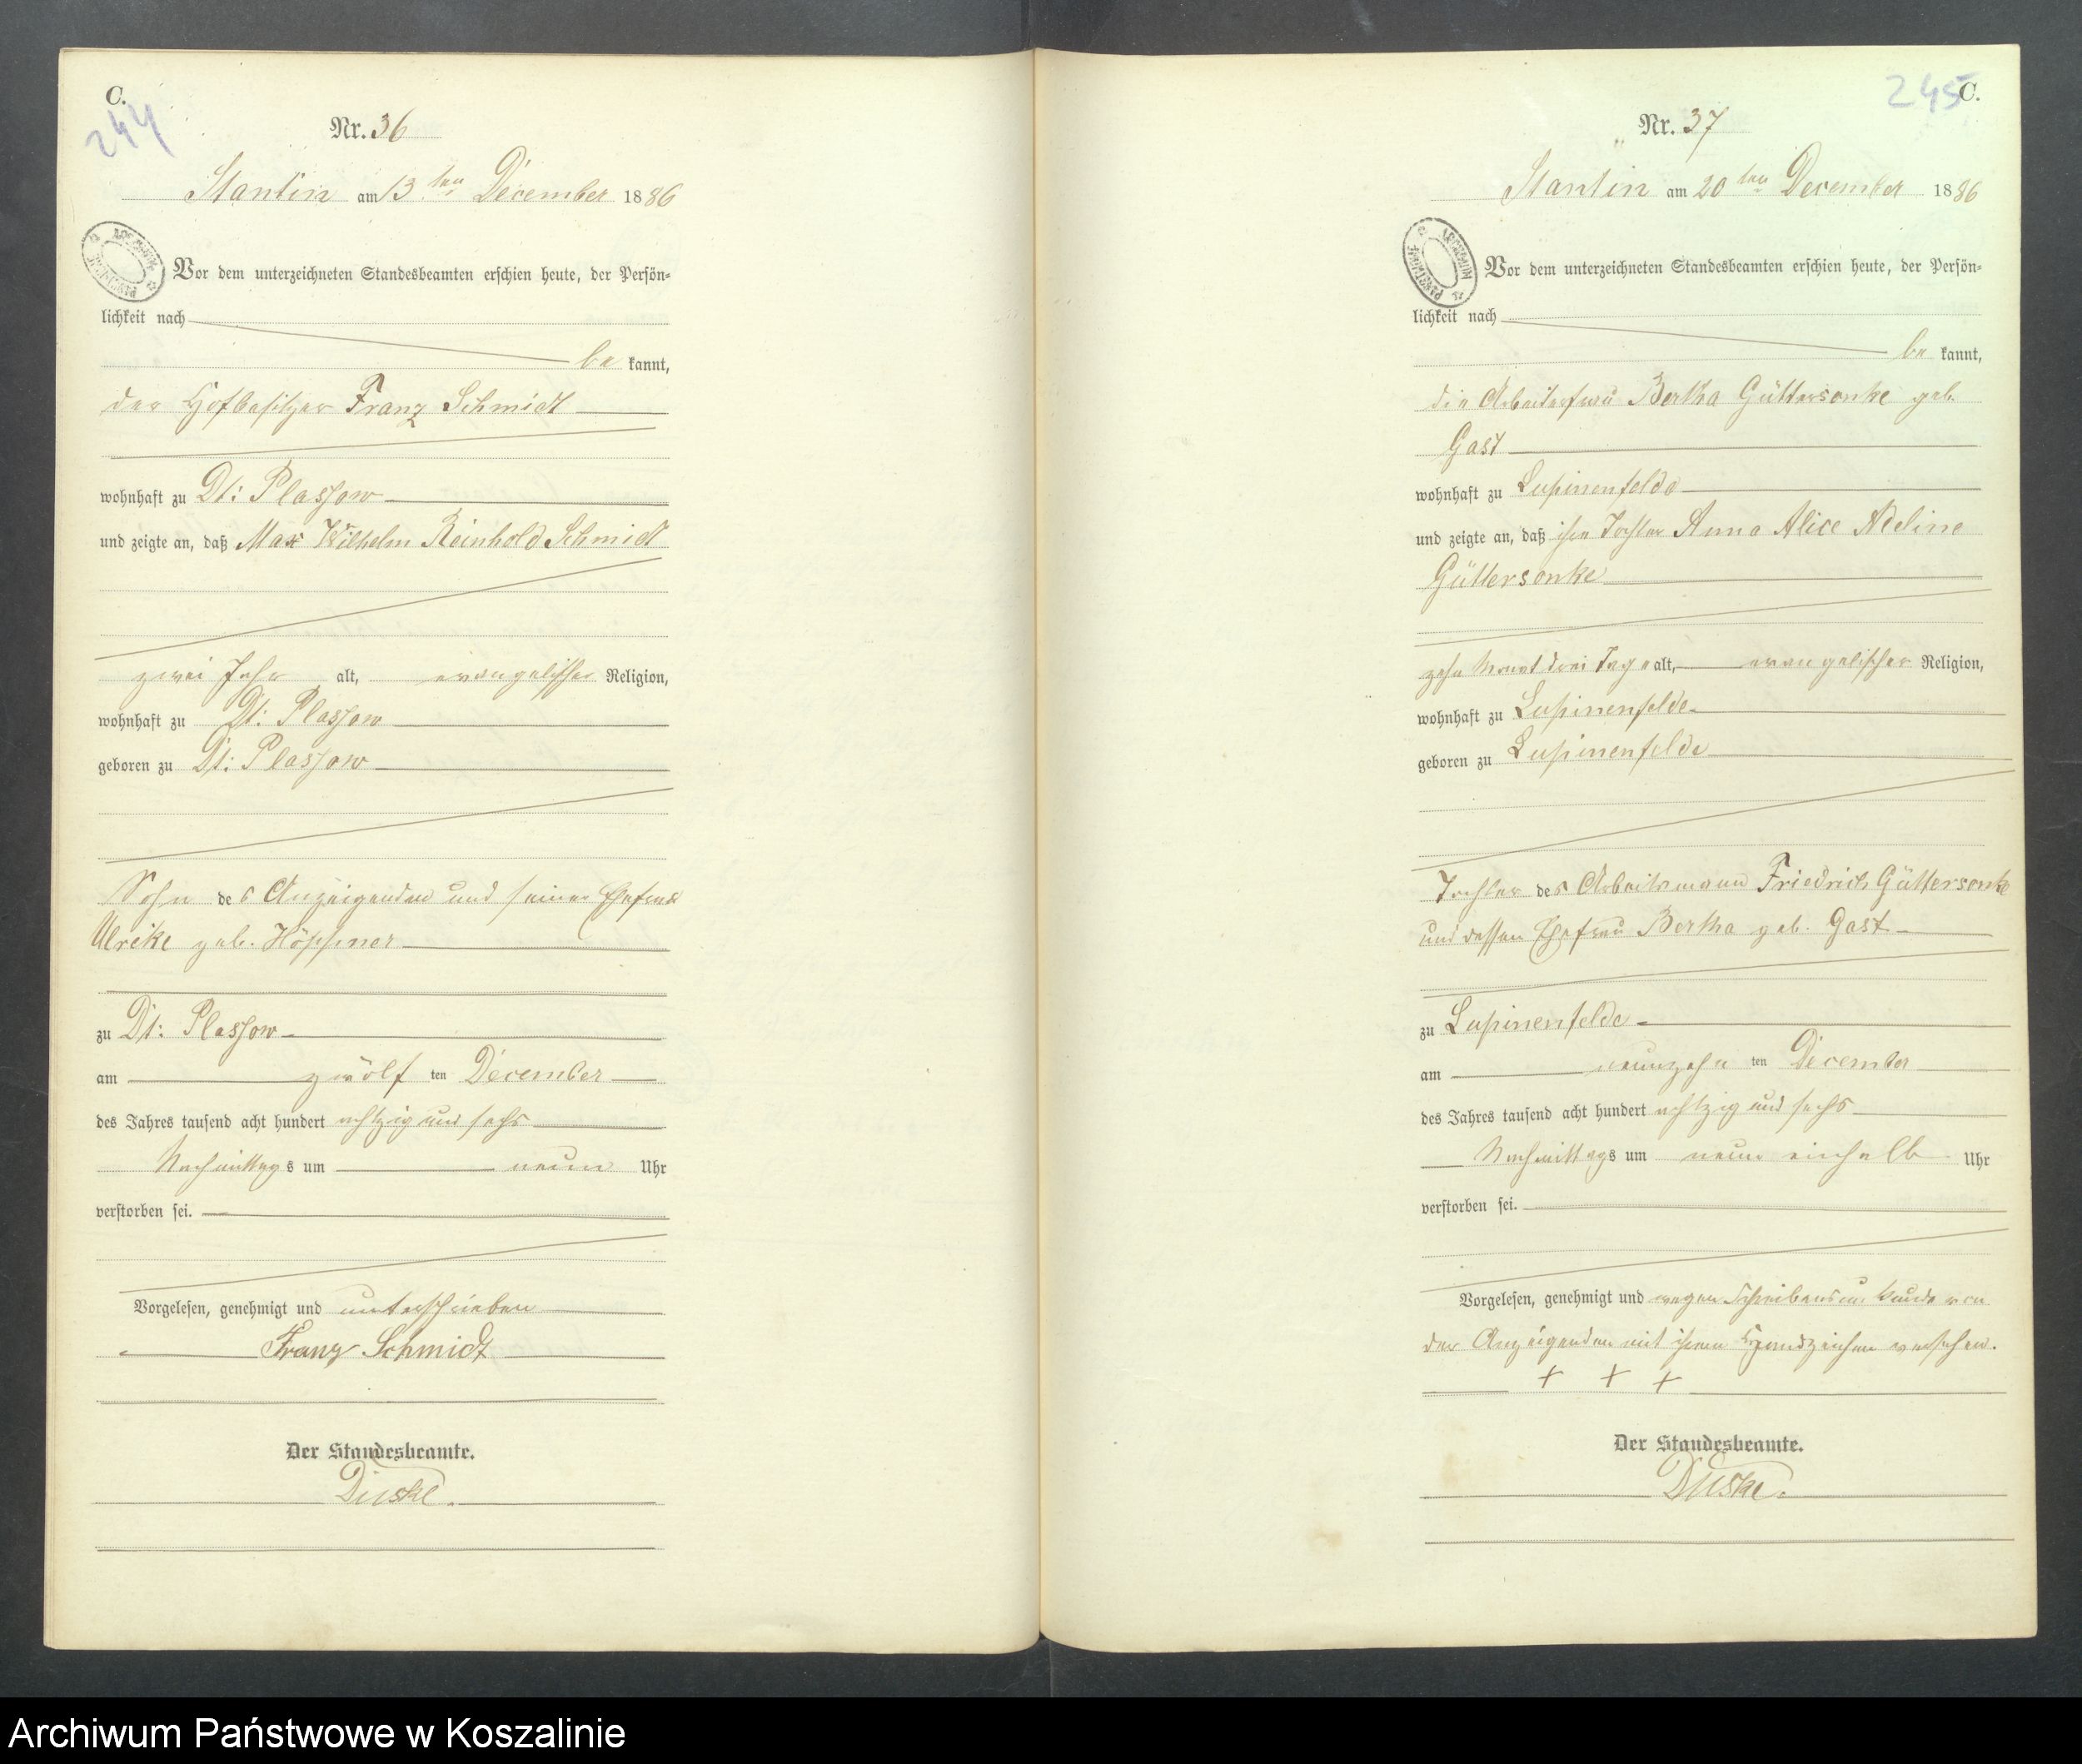 C.
244
Nr. 36
Stantin am 13 ten December 1886
Vor dem unterzeichneten Standesbeamten erschien heute, der Persön-
lichkeit nach
be kannt,
der Hofbesitzer Franz Schmidt
wohnhaft zu Dt: Plassow
und zeigte an, daß Max Wilhelm Reinhold Schmidt
zwei Jahr alt, evangelischer Religion,
wohnhaft zu Dt: Plassow
geboren zu Dt: Plassow
Sohn des Anzeigenden und seiner Ehefrau
Ulrike geb. Höppner
zu Dt: Plassow
am zwölf ten December
des Jahres tausend acht hundert achtzig und sechs
Nachmittags um neun Uhr
verstorben sei.
Vorgelesen, genehmigt und unterschrieben
Franz Schmidt
Der Standesbeamte.
Düske.
245
C.
Nr. 37
Stantin am 20 ten December 1886
Vor dem unterzeichneten Standesbeamten erschien heute, der Persön-
lichkeit nach
be kannt,
die Arbeiterfrau Bertha Güttersonke geb.
Gast
wohnhaft zu Lupinenfelde
und zeigte an, daß ihre Tochter Anna Alice Adeline
Güttersonke
zehn Monat drei Tage alt, evangelischer Religion,
wohnhaft zu Lupinenfelde
geboren zu Lupinenfelde
Tochter des Arbeitsmann Friedrich Güttersonke
und dessen Ehefrau Bertha geb. Gast
zu Lupinenfelde
am neunzehn ten December
des Jahres tausend acht hundert achtzig und sechs
Nachmittags um neun einhalb Uhr
verstorben sei.
Vorgelesen, genehmigt und wegen Schreibensunkunde von
der Anzeigenden mit ihrem Handzeichen versehen.
+ + +
Der Standesbeamte.
Düske.
Archiwum Państwowe w Koszalinie